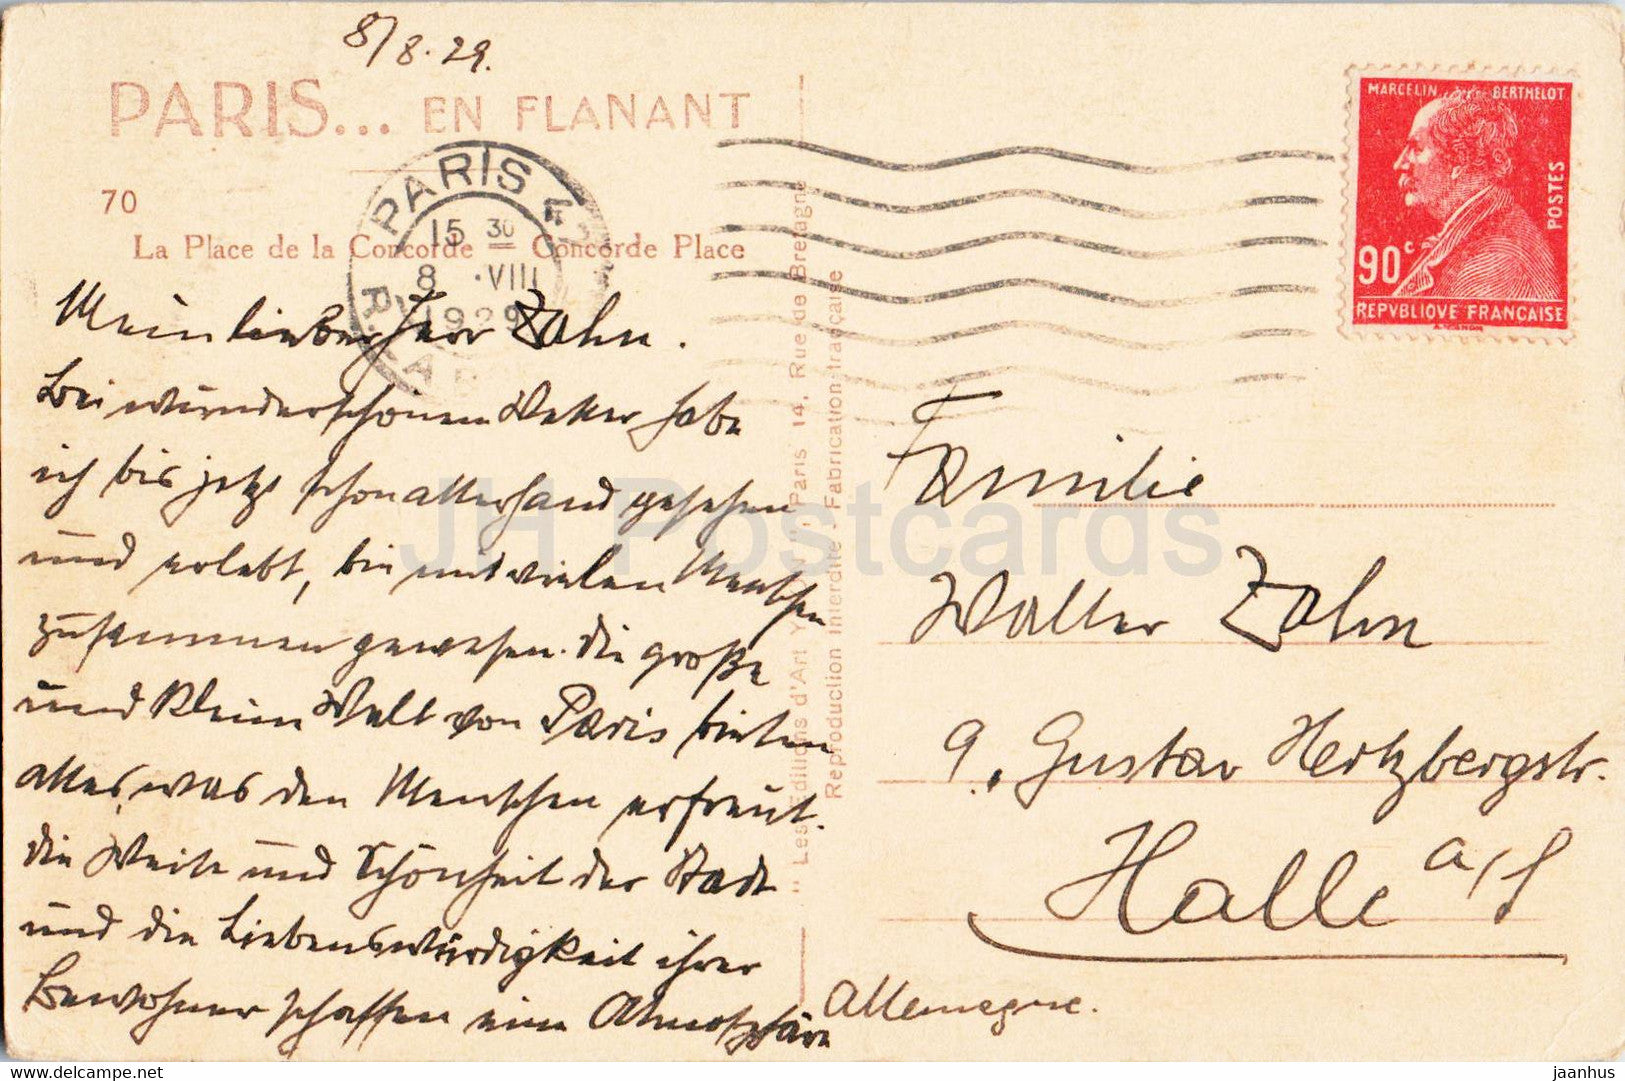 8/8.29.
PARIS... EN FLANANT
70
La Place de la Concorde = Concorde Place
PARIS 4
15 30
8 .VIII
1929
MARCELIN BERTHELOT
POSTES
90c
REPVBLIQVE FRANÇAISE
Mein lieber Herr Zahn.
Bei wunderschönem Wetter habe
ich bis jetzt schon allerhand gesehen
und erlebt, bin mit vielen Menschen
zusammen gewesen. Die große
und kleine Welt von Paris bieten
alles, was den Menschen erfreut.
Die Weite und Schönheit der Stadt
und die Liebenswürdigkeit ihrer
Bewohner schaffen eine Atmosphäre
"Les Editions d'Art Paris 14, Rue de Bretagne
Reproduction interdite - Fabrication française
Familie
Walter Zahn
9, Gustav Hertzbergstr.
Halle a/S
Allemagne.
JH Postcards
www.delcampe.net
jaanhus